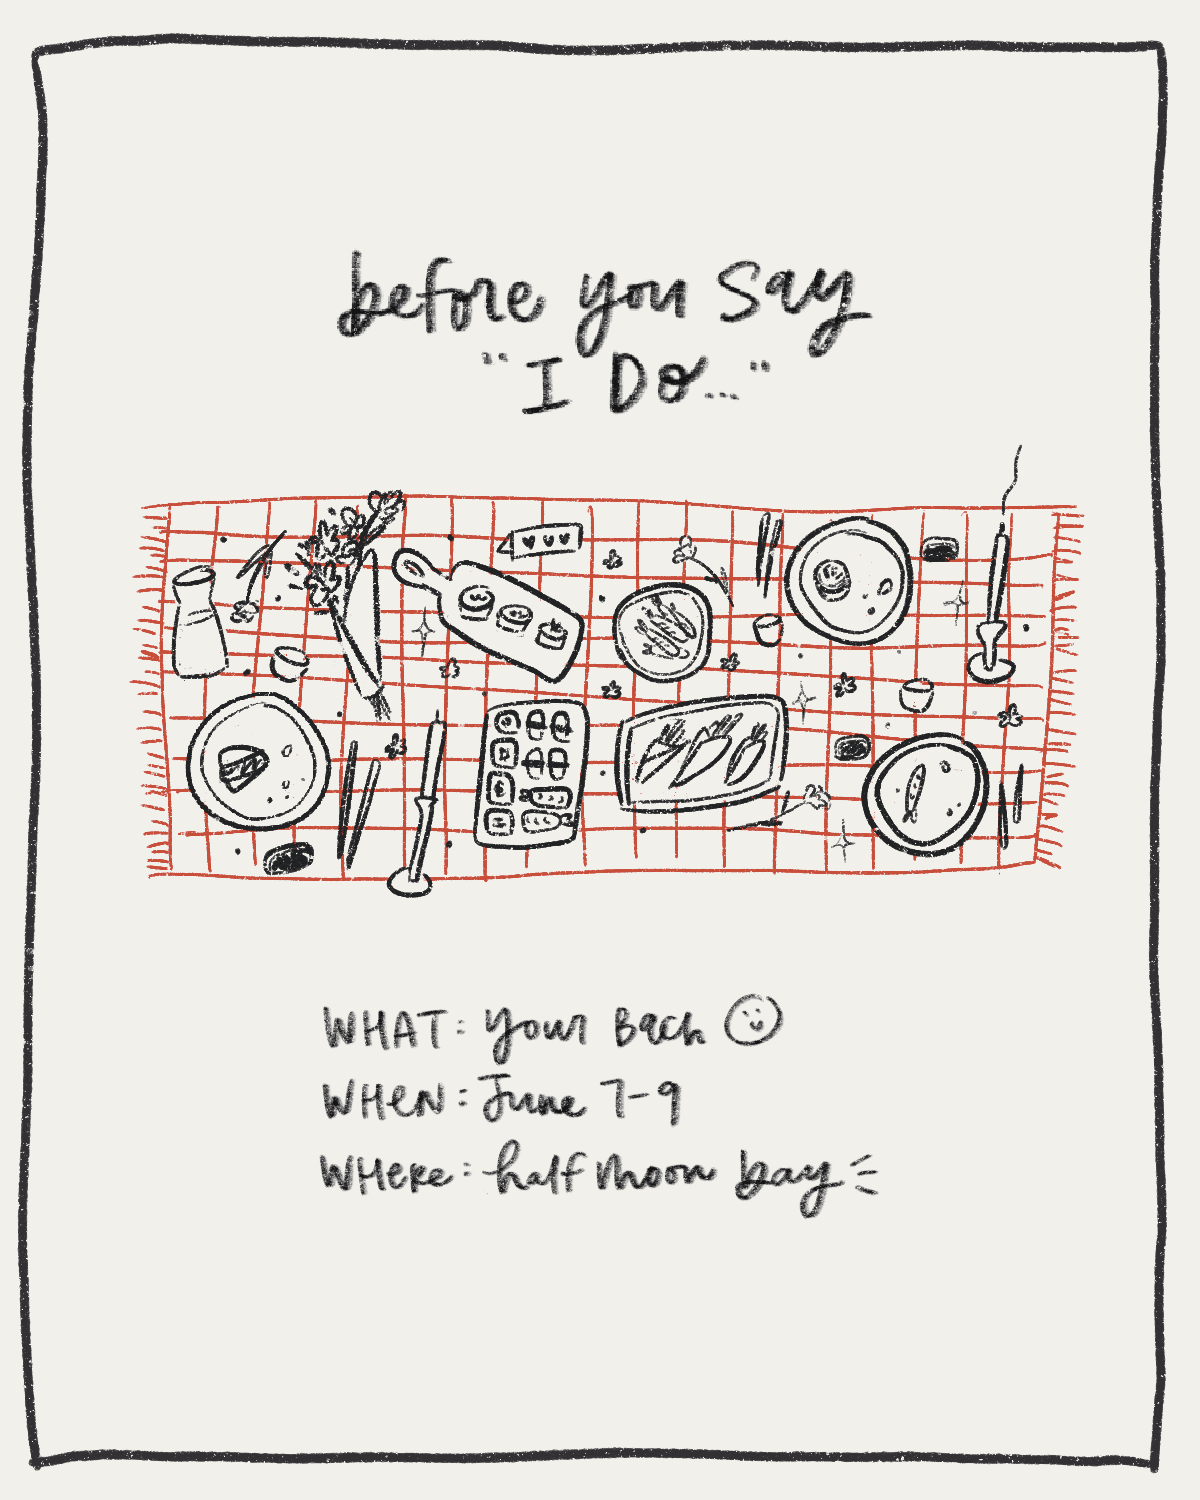 before you say
"I Do..."
WHAT: your Bach
WHEN: June 7-9
WHERE: half moon bay